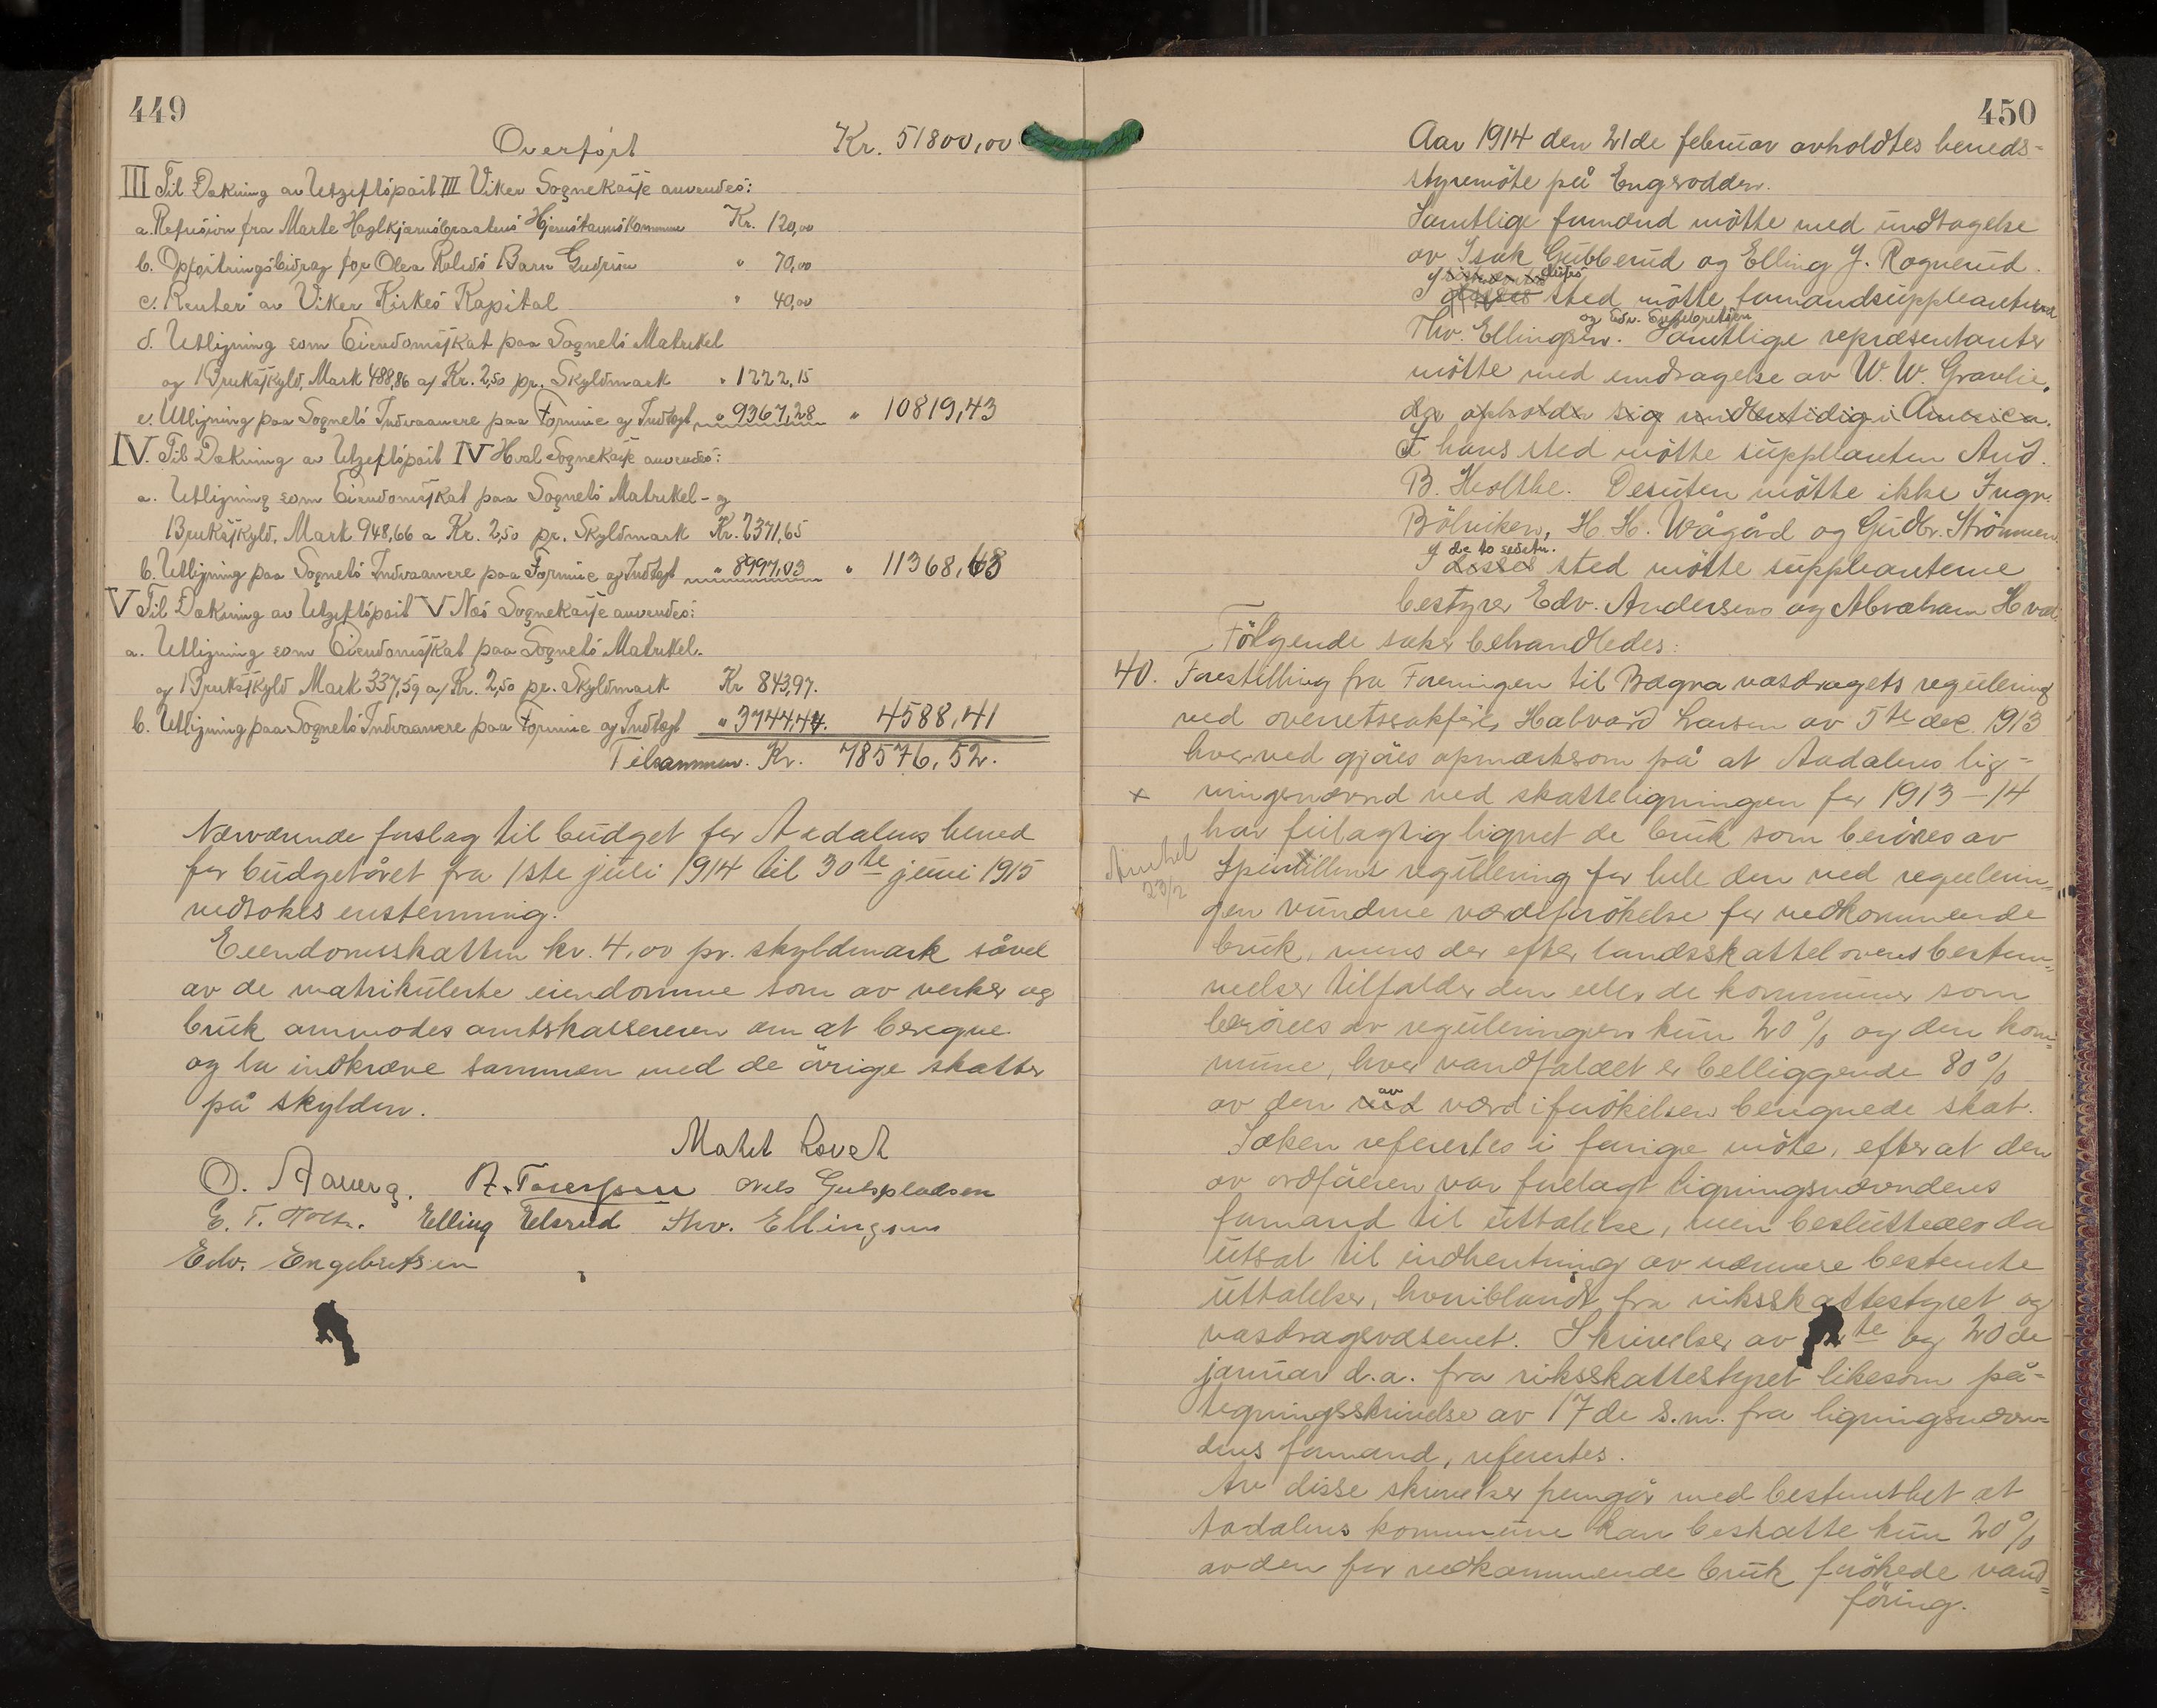 449
Overført Kr. 51800,00
III Til Dækning av Utgiftspost III Viker Sognekasse anvendes:
a. Refusion fra Marte Haglkjærnsbraatens Hjemstavnskommune Kr. 120,00
b. Opfostringsbidrag for Olea Rolids Barn Gudrun " 70,00
c. Renter av Viker Kirkes Kapital " 40,00
d. Utligning som Eiendomsskat paa Sognets Matrikel
og Bruksskyld, Mark 488,86 a/ Kr. 2,50 pr. Skyldmark " 1222,15
e. Utligning paa Sognets Indvaanere paa Formue og Indtægt " 9367,28 " 10819,43
IV. Til Dækning av Utgiftspost IV Hval Sognekasse anvendes:
a. Utligning som Eiendomsskat paa Sognets Matrikel- og
Bruksskyld, Mark 948,66 a Kr. 2,50 pr. Skyldmark Kr. 2371,65
b. Utligning paa Sognets Indvaanere paa Formue og Indtægt " 8997,03 " 11368,68
V Til Dækning av Utgiftspost V Næs Sognekasse anvendes:
a. Utligning som Eiendomsskat paa Sognets Matrikel.
og Bruksskyld Mark 337,59 a/ Kr. 2,50 pr. Skyldmark Kr 843,97.
b. Utligning paa Sognets Indvaanere paa Formue og Indtægt " 3744,44. 4588,41
Tilsammen. Kr. 78576,52.
Nærværende forslag til budget for Aadalens hered
for budgetåret fra 1ste juli 1914 til 30te juni 1915
vedtokes enstemmig.
Eiendomsskatten kr. 4,00 pr. skyldmark såvel
av de matrikulerte eiendomme som av verker og
bruk anmodes amtskassereren om at beregne
og la indkræve sammen med de övrige skatter
på skylden.
O. Aaberg. A. Thoresen Nils Gulspladsen
Elling Elsrud Thv. Ellingsen
Edv. Engebretsen
450
Aar 1914 den 21de februar avholdtes hereds-
styremöte på Engerodden.
Samtlige formænd mötte med undtagelse
av Isak Gubberud og Elling J. Rognerud.
I sted mötte formandsuppleanterne
og Edv. Engebretsen
Thv. Ellingsen. Samtlige repræsentanter
mötte med undtagelse av W. W. Gravlie,
der opholder sig undertidig i America.
I hans sted mötte suppleanten And.
B. Holthe. Desuten mötte ikke Ingv.
Bölviken, H. H. Vågård og Gudbr. Strömmen
I de to sidstn.
I disses sted mötte suppleanterne
bestyrer Edv. Andersen og Abraham Hval
Fölgende saker behandledes:
40. Forestilling fra Foreningen til Bægna vasdragets regulering
ved overretssakförer Halvard Larsen av 5te dec. 1913
hvorved gjöres opmerksom på at Aadalens lig-
x ningsnævnd ved skatteligningen for 1913-14
har feilagtig lignet de bruk som beröres av
23/2 Sperillens regulering for hele den ved regulerin-
gen vundne værdiforökelse for vedkommende
bruk, mens der efter landsskattelovens bestem-
melser tilfalder den eller de kommuner som
beröres av reguleringen kun 20% og den kom-
mune, hvor vandfaldet er belliggende 80%
av
av den ved værdiforökelsen beregnede skat.
Saken refertes i forrige möte, efter at den
av ordföreren var forelagt ligningsnævndens
formand til uttalelse, men besluttedes da
utsat til indhentning av nærmere bestemte
uttalelser, hvoriblandt fra riksskattestyret og
vasdragsvæsenet. Skrivelser av te og 20de
januar d.a. fra riksskattestyret likesom på-
tegningsskrivelse av 17de s.m. fra ligningsnævn-
dens formand, refertes.
Av disse skrivelser fremgår med bestemthet at
Aadalens kommune kan beskatte kun 20%
av den for vedkommende bruk forökede vand-
föring.